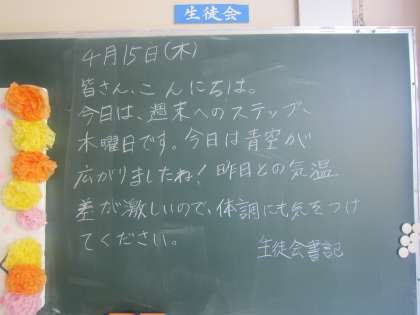 生徒会
4月15日(木)
皆さん、こんにちは。
今日は、週末へのステップ、
木曜日です。今日は青空が
広がりましたね！昨日との気温
差が激しいので、体調にも気をつけ
てください。
生徒会書記